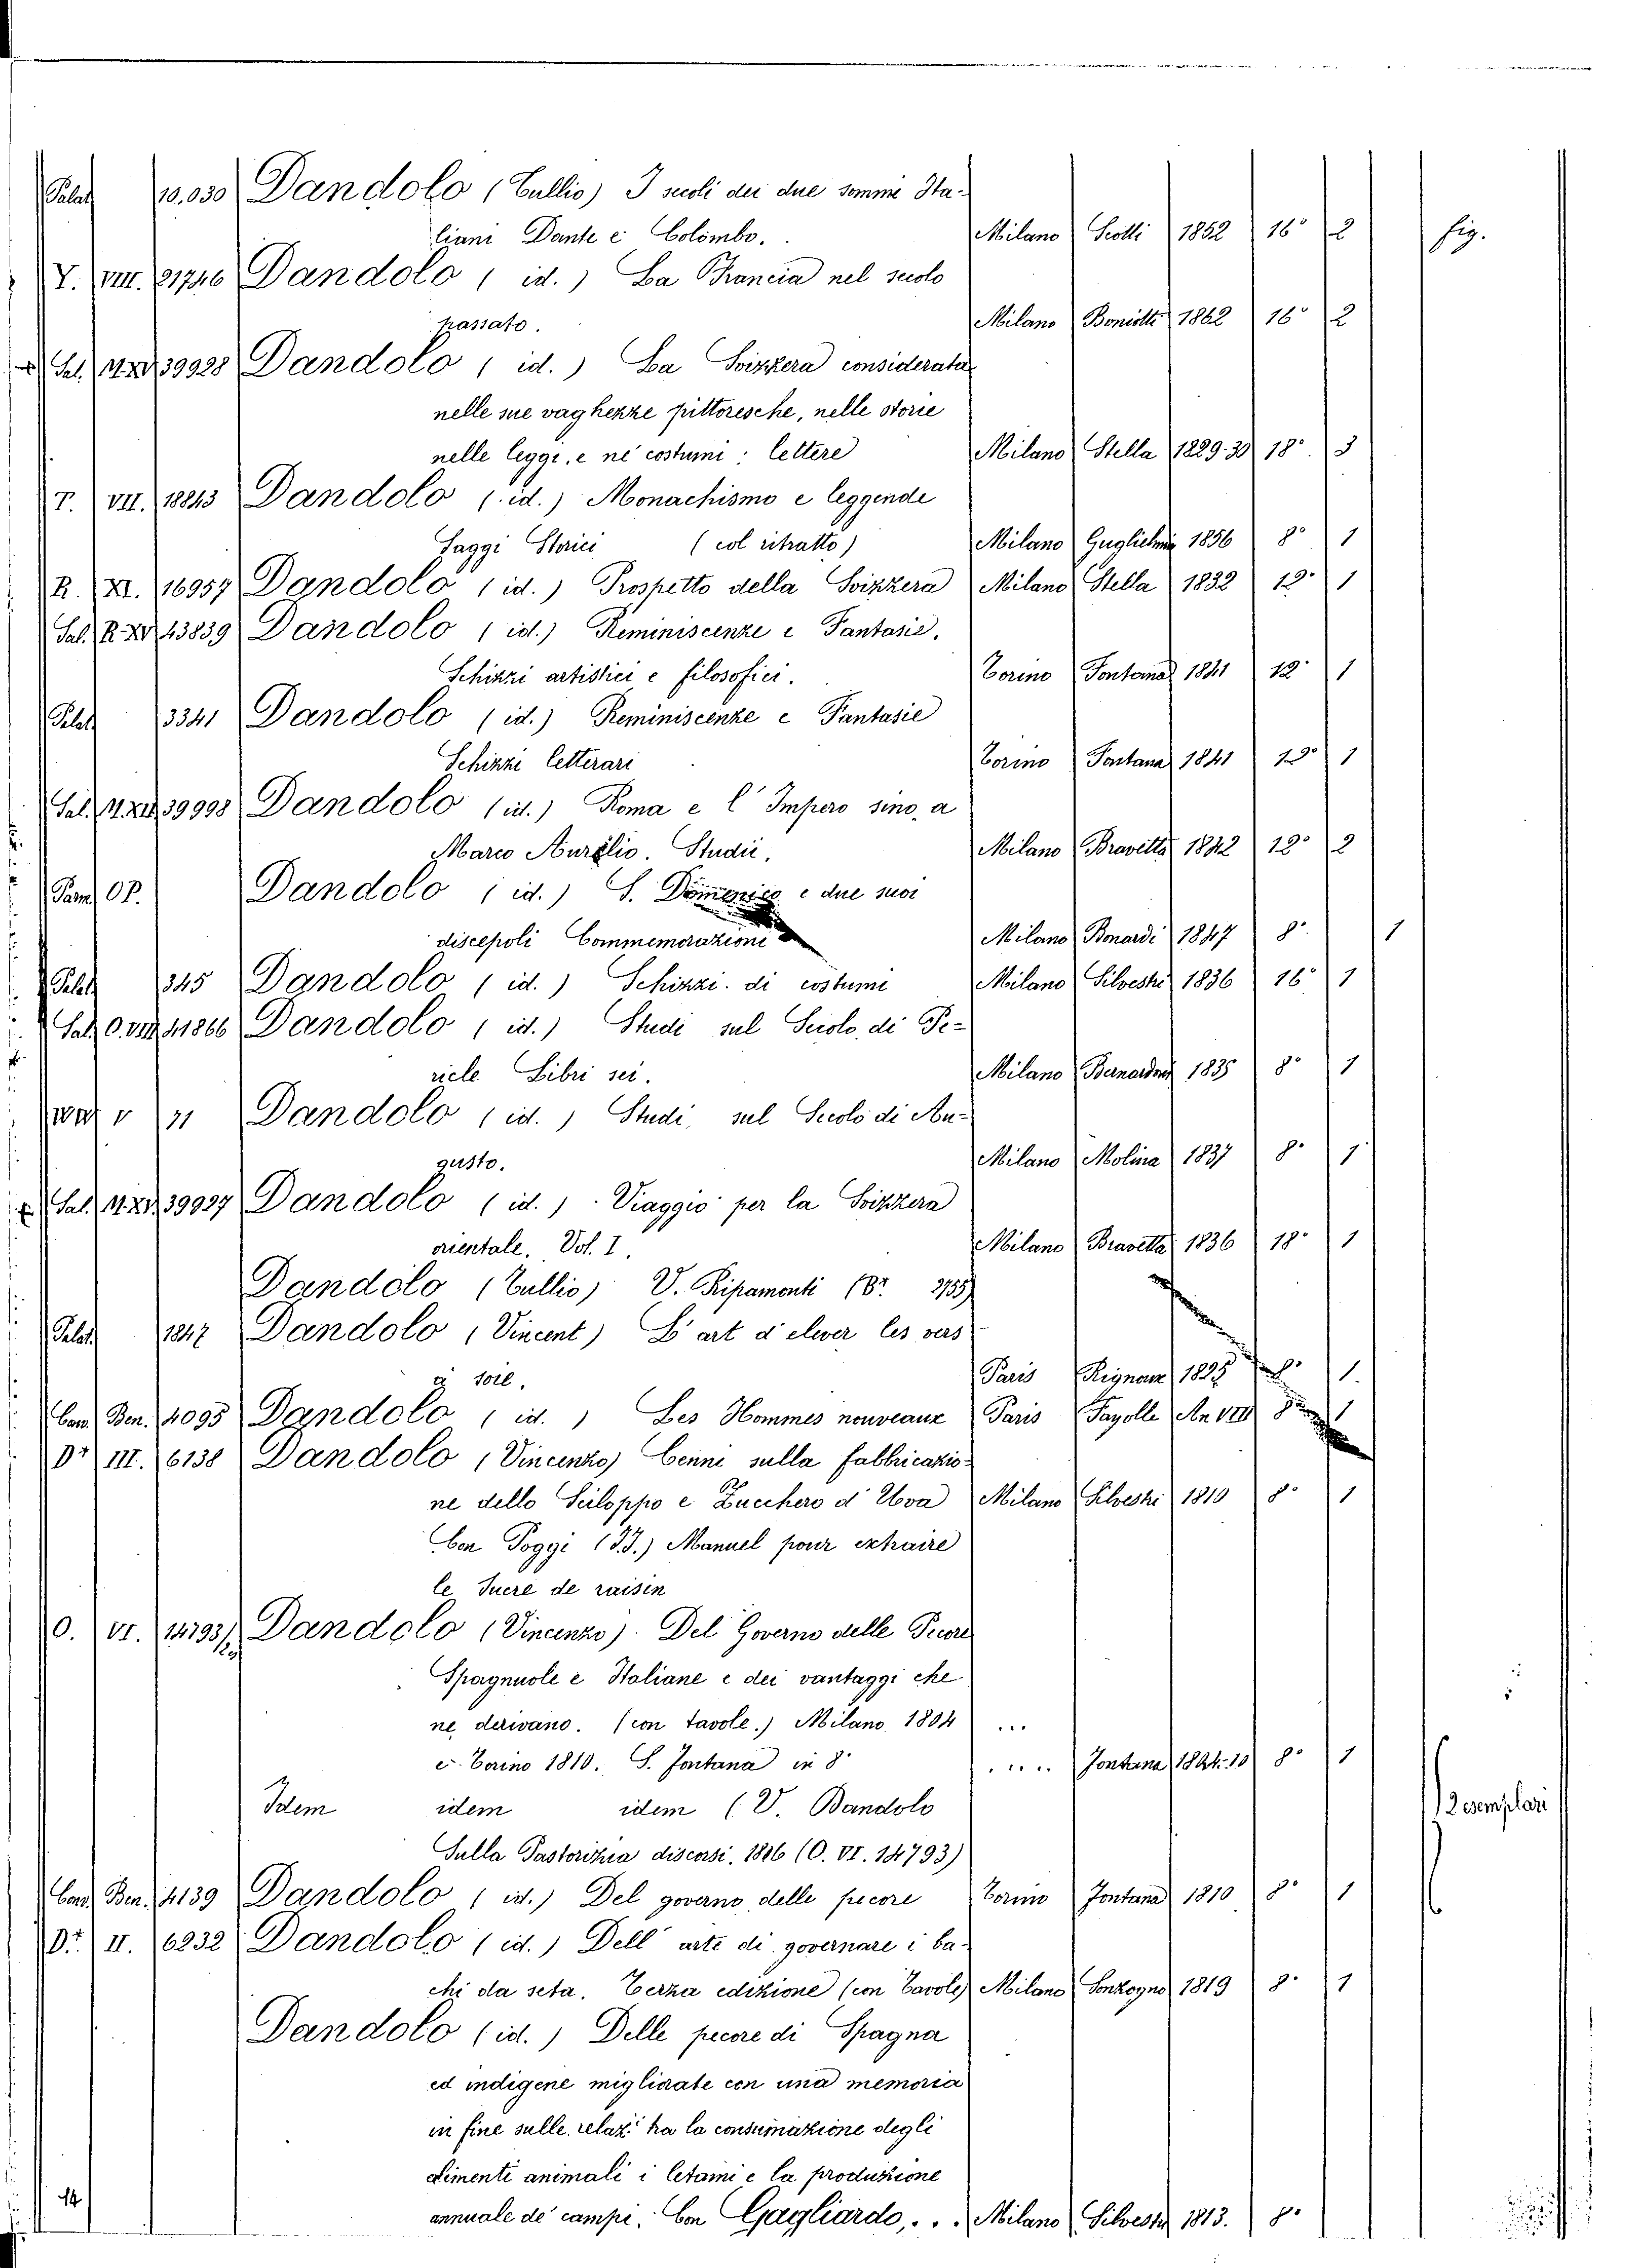 Palat 10,030 Dandolo (Tullio) I secoli dei due sommi Ita-
liani Dante e Colombo. Milano Scotti 1852 16° 2 fig.
Y. VIII. 21746 Dandolo ( id. ) La Francia nel secolo
passato. Milano Boniotti 1862 16° 2
Sal. M.XII. 39928 Dandolo ( id. ) La Svizzera considerata
nelle sue vaghezze pittoresche, nelle storie
nelle leggi, e ne' costumi: lettere Milano Stella 1829-30 18° 3
T. VII. 18843 Dandolo ( id. ) Monachismo e leggende
Saggi Storici ( col ritratto ) Milano Guglielmini 1856 8° 1
R. XI. 16957 Dandolo ( id. ) Prospetto della Svizzera Milano Stella 1832 12° 1
Sal. R. XV 43839 Dandolo ( id. ) Reminiscenze e Fantasie.
Schizzi artistici e filosofici. Torino Fontana 1841 12° 1
Palat 3341 Dandolo ( id. ) Reminiscenze e Fantasie
Schizzi letterari Torino Fontana 1841 12° 1
Sal. 39998 Dandolo ( id. ) Roma e l'Impero sino a
Marco Aurelio. Studii. Milano Bravetta 1842 12° 2
OP. Dandolo ( id. ) S. Domenico e due suoi
discepoli Commemorazioni Milano Bonardi 1847 8° 1
Palat 345 Dandolo ( id. ) Schizzi di costumi Milano Silvestri 1836 16° 1
Sal. O. VIII 41866 Dandolo ( id. ) Studi sul Secolo di Pe-
ricle Libri sei. Milano Bernardoni 1835 8° 1
V 71 Dandolo ( id. ) Studi sul Secolo di Au-
gusto. Milano Molina 1837 8° 1
Sal. M.XII. 39927 Dandolo ( id. ) Viaggio per la Svizzera
orientale. Vol. I. Milano Bravetta 1836 18° 1
Dandolo (Tullio) V. Ripamonti (Br. 2155)
Palat. 1847 Dandolo (Vincent) L'art d'elever les vers
à soie. Paris 1825 8° 1
Ben. 4095 Dandolo ( id. ) Les Hommes nouveaux Paris Fayolle An VII 8° 1
Dr III. 6138 Dandolo (Vincenzo) Cenni sulla fabbricazio-
ne dello Sciloppo e Zucchero d'Uva Milano Silvestri 1810 8° 1
Con Poggi (J.J.) Manuel pour extraire
le Sucre de raisin
O. VI. 14793/ Dandolo (Vincenzo). Del Governo delle Pecore
Spagnuole e Italiane e dei vantaggi che
ne derivano. (con tavole.) Milano 1804 ...
e Torino 1810. S. Fontana in 8° ..... Fontana 1804-10 8° 1
Idem idem idem ( V. Bandolo 2 esemplari
Sulla Pastorizia discorsi. 1806 (O. VI. 14793)
Ben. 4139 Dandolo ( id. ) Del governo delle pecore Torino Fontana 1810 8° 1
Dr. II. 6232 Dandolo ( id. ) Dell'arte di governare i ba-
chi da seta. Terza edizione (con tavole) Milano Sonzogno 1819 8° 1
Dandolo ( id. ) Delle pecore di Spagna
ed indigene migliorate con una memoria
in fine sulle relaz' tra la consumazione degli
alimenti animali i letami e la produzione
annuale de' campi. Con Gagliardo,... Milano Silvestri 1813. 8°
14